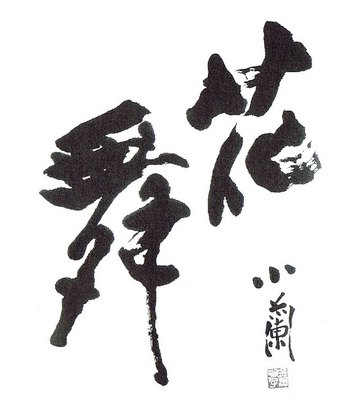 花
舞
小蘭